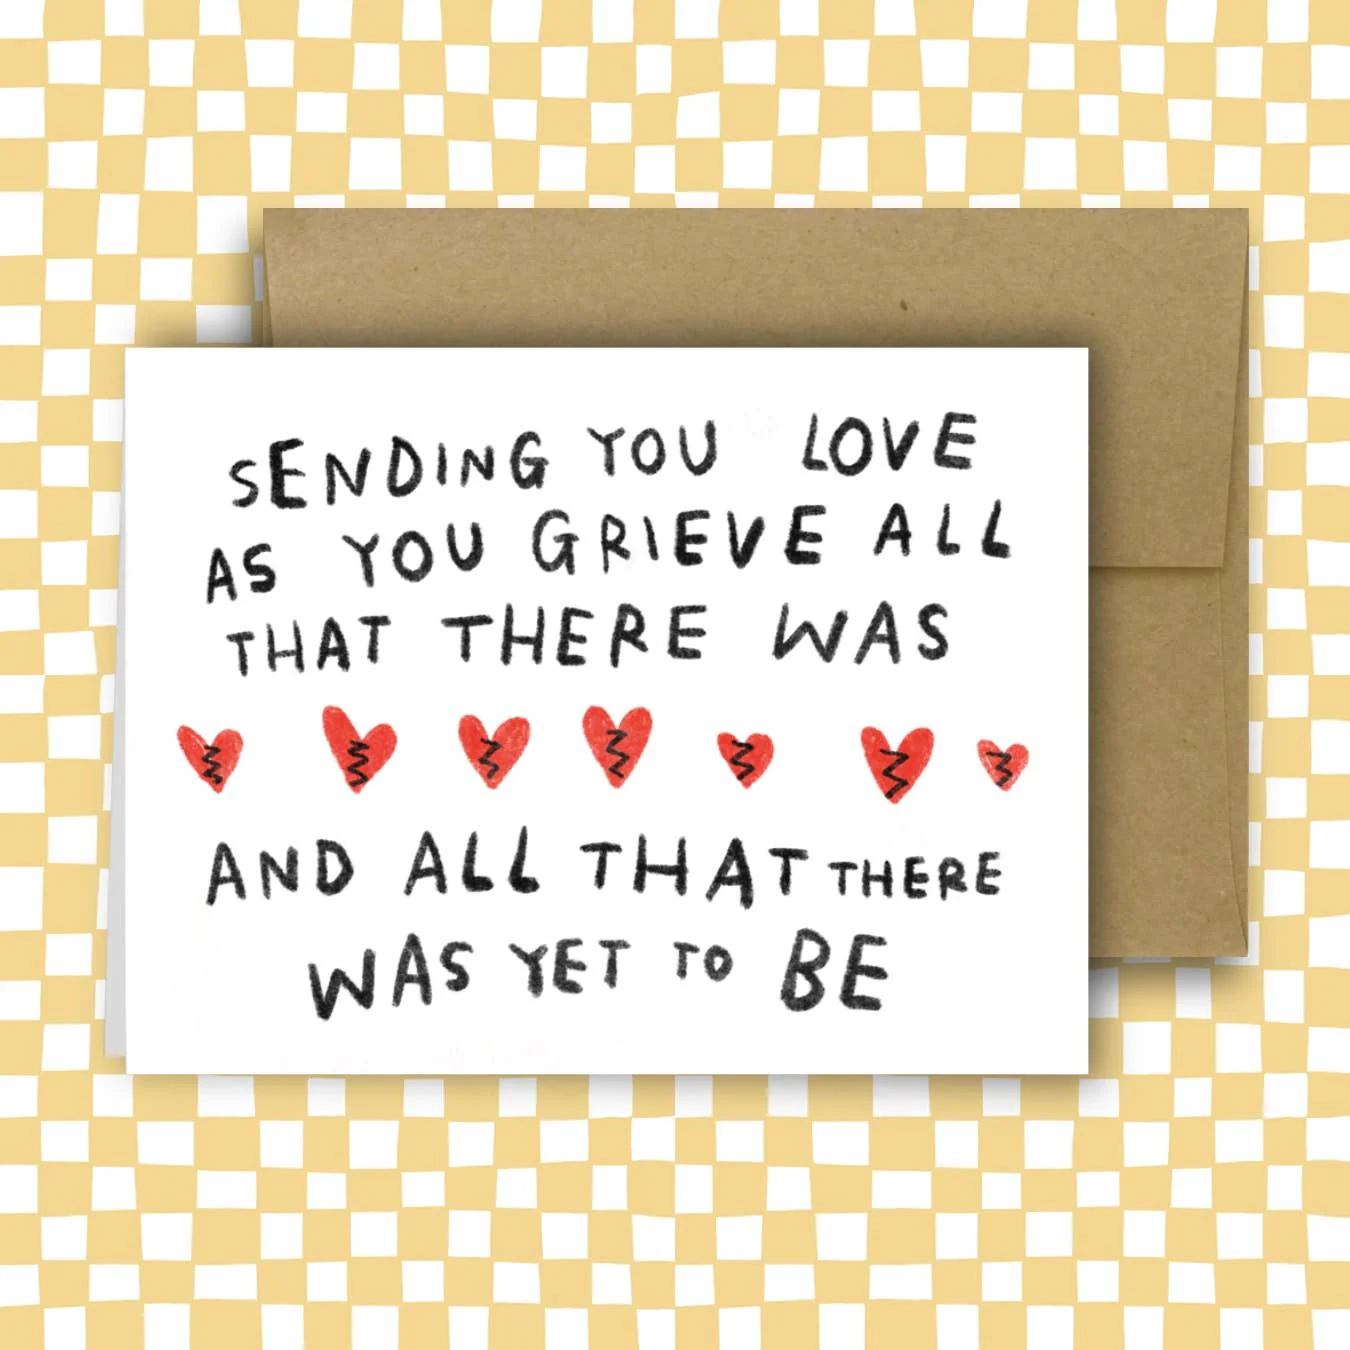 SENDING YOU LOVE
AS YOU GRIEVE ALL
THAT THERE WAS
AND ALL THAT THERE
WAS YET TO BE